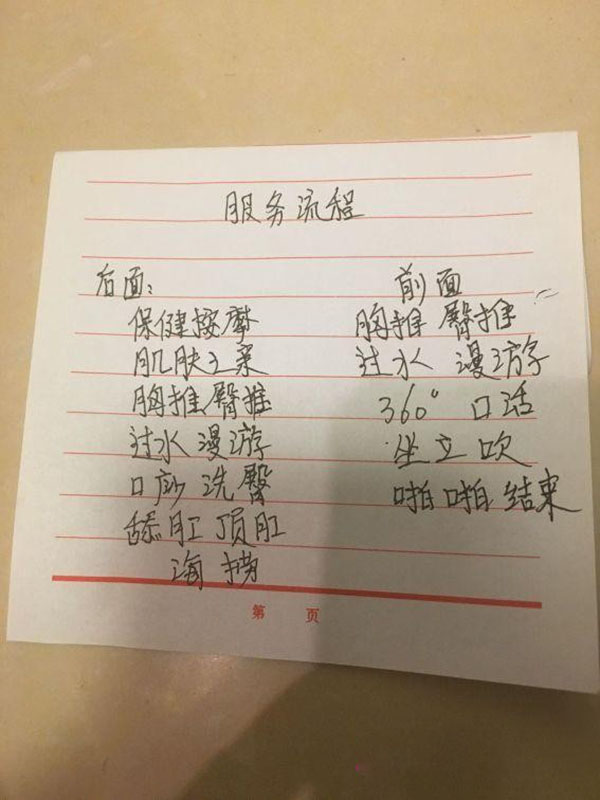 服务流程
后面:
保健按摩
肌肤之亲
胸推臀推
过水漫游
口纱洗臀
舔肛顶肛
海捞
前面
胸推臀推
过水漫游
360° 口活
坐立吹
啪啪结束
第 页